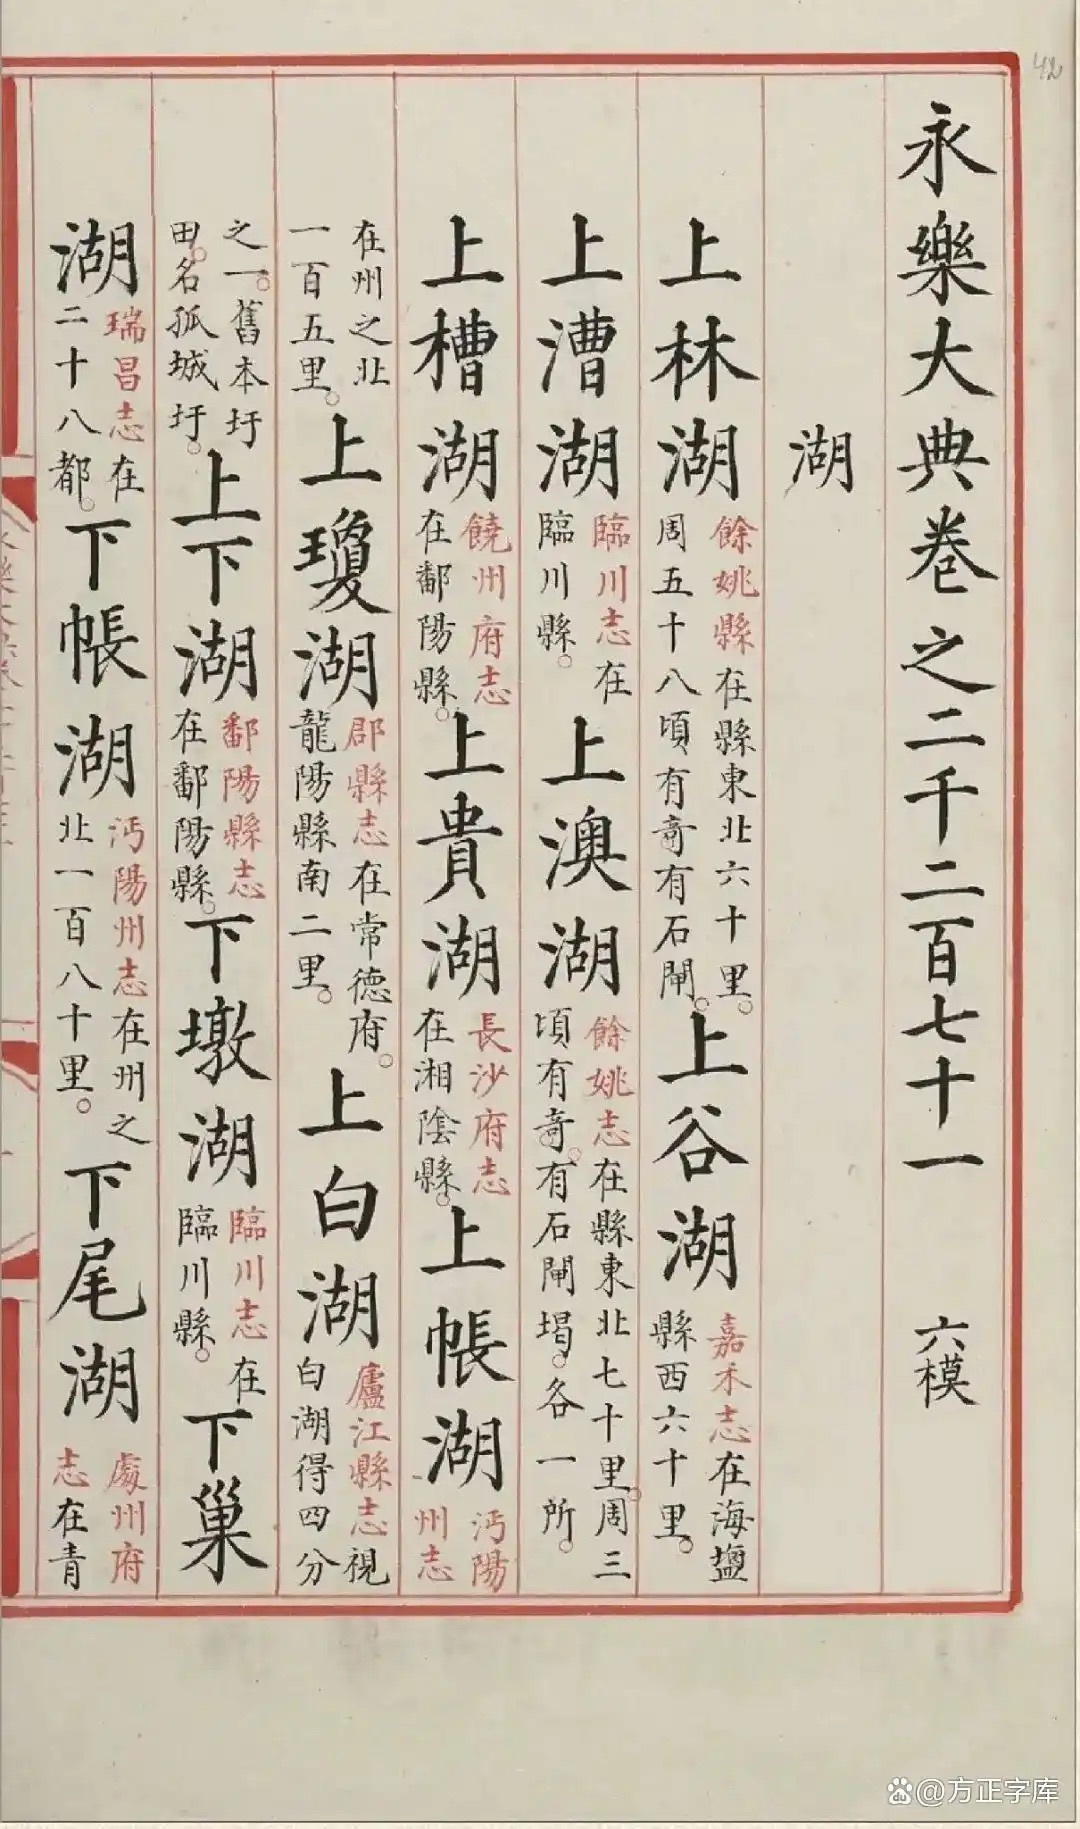 永樂大典卷之二千二百七十一 六模
湖
上林湖 餘姚縣在縣東北六十里。周五十八頃有奇有石閘。上谷湖 嘉禾志在海鹽縣西六十里。
上漕湖 臨川志在臨川縣。上澳湖 餘姚志在縣東北七十里。周三頃有奇。有石閘堨。各一所。
上槽湖 饒州府志在鄱陽縣。上貴湖 長沙府志在湘陰縣。上帳湖 沔陽州志
在州之北一百五里。上瓊湖 郡縣志在常德府。龍陽縣南二里。上白湖 廬江縣志視白湖得四分
之一。舊本圩田。名孤城圩。上下湖 鄱陽縣志在鄱陽縣。下墩湖 臨川志在臨川縣。下巢
湖 瑞昌志在二十八都。下帳湖 沔陽州志在州之北一百八十里。下尾湖 處州府志在青
42
@方正字库